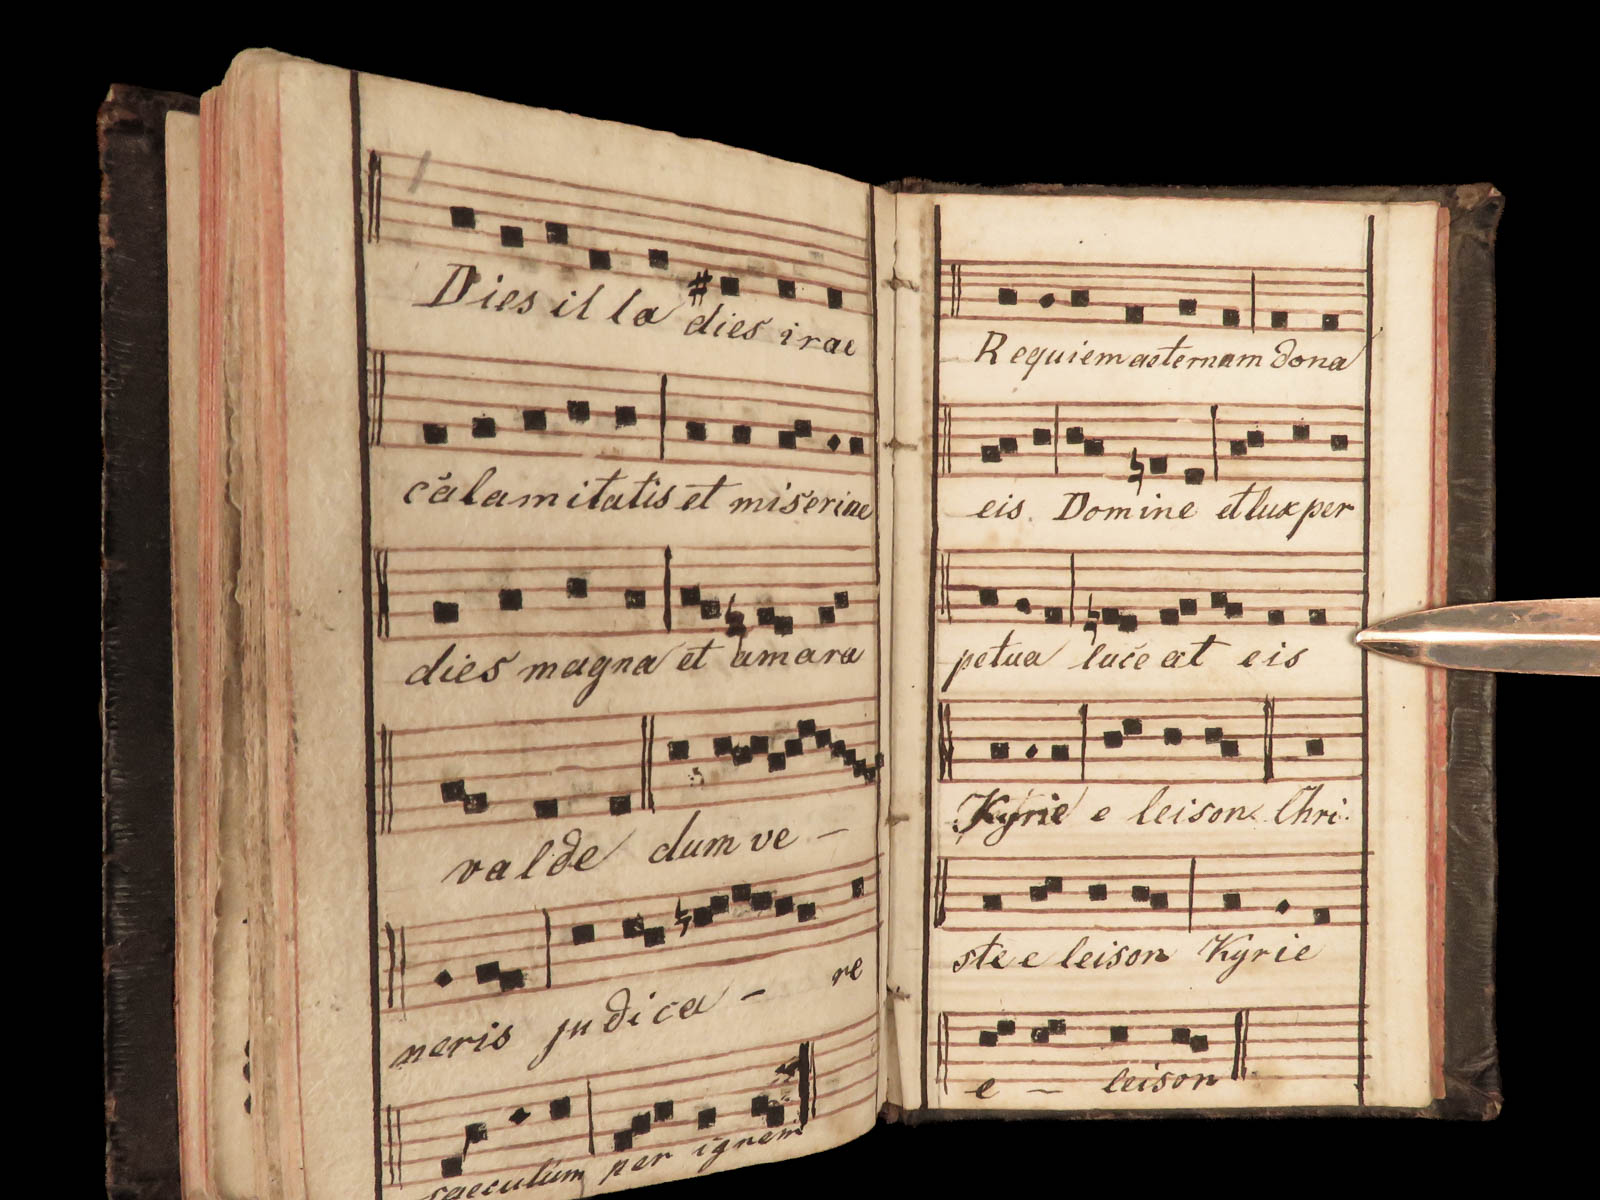 Dies il la dies irae
calamitatis et miseriae
dies magna et amara
valde dum ve –
neris judica – re
saeculum per ignem
Requiem aeternam dona
eis Domine et lux per
petua luceat eis
Kyrie e leison Chri
ste e leison Kyrie
e – leison